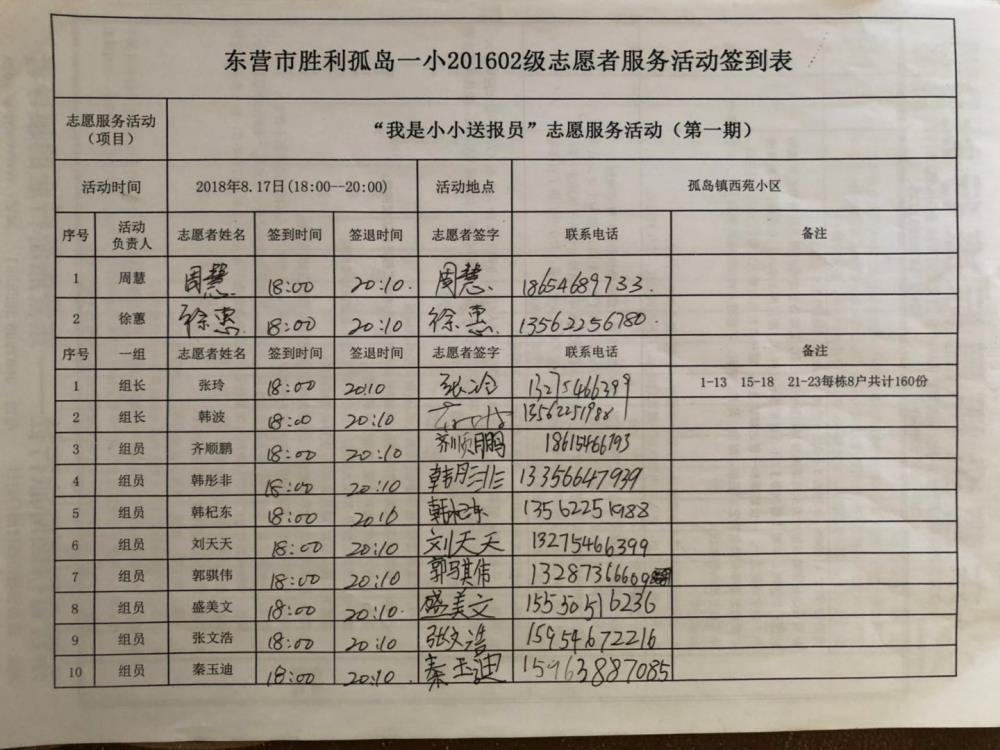 东营市胜利孤岛一小201602级志愿者服务活动签到表
志愿服务活动（项目） “我是小小送报员”志愿服务活动（第一期）
活动时间 2018年8.17日(18:00--20:00) 活动地点 孤岛镇西苑小区
序号 活动负责人 志愿者姓名 签到时间 签退时间 志愿者签字 联系电话 备注
1 周慧 周慧 18:00 20:10. 周慧. 18654689733.
2 徐蕙 徐惠 18:00 20:10 徐惠. 13562256780.
序号 一组 志愿者姓名 签到时间 签退时间 志愿者签字 联系电话 备注
1 组长 张玲 18:00 20:10 张冷 13275466399 1-13 15-18 21-23每栋8户共计160份
2 组长 韩波 18:00 20:10 13562251988
3 组员 齐顺鹏 18:00 20:10 齐顺鹏 18615466193
4 组员 韩彤非 18:00 20:10 韩彤非 13356647939
5 组员 韩杞东 18:00 20:10 韩杞东 13562251988
6 组员 刘天天 18:00 20:10 刘天天 13275466399
7 组员 郭骐伟 18:00 20:10 郭骐伟 13287366609
8 组员 盛美文 18:00 20:10. 盛美文 15550516236
9 组员 张文浩 18:00 20:10 张文浩 15954672216
10 组员 秦玉迪 18:00 20:10. 秦玉迪 15963887085